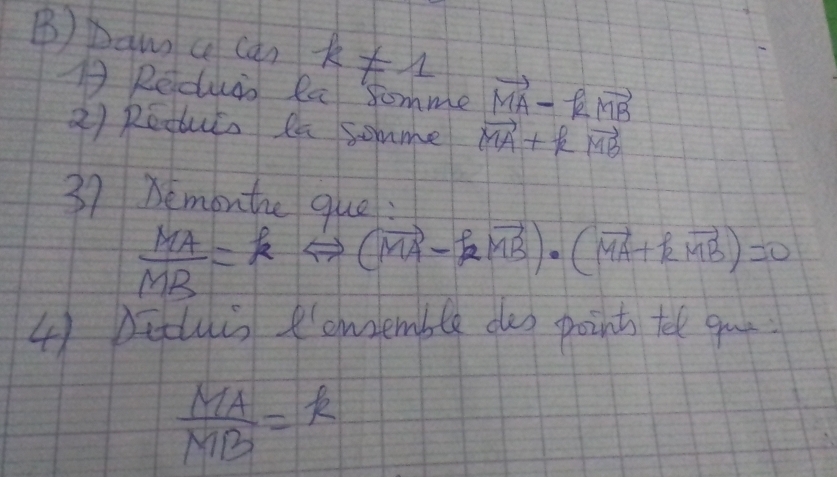 B) Dans ce cas k ≠ 1
1) Réduis la somme \overrightarrow{MA} - k \overrightarrow{MB}
2) Réduis la somme \overrightarrow{MA} + k \overrightarrow{MB}
3) Démontre que :
\frac{MA}{MB} = k ⇔ (\overrightarrow{MA} - k \overrightarrow{MB}) · (\overrightarrow{MA} + k \overrightarrow{MB}) = 0
4) Déduis l'ensemble des points tel que :
\frac{MA}{MB} = k